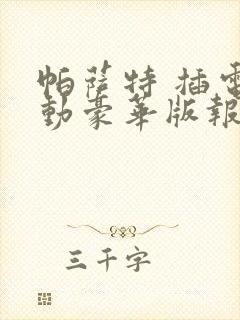 帕萨特 插電
動豪華版報
三千字